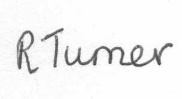 R Turner